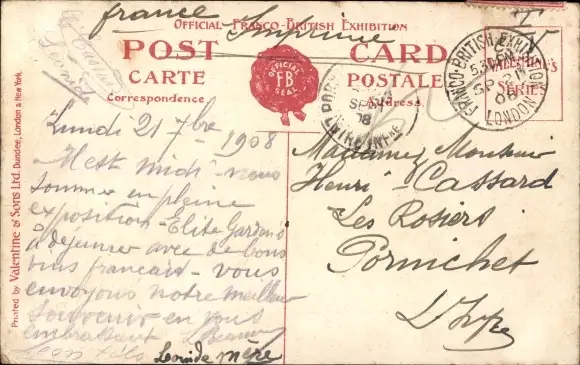 france Imprimé
Official Franco-British Exhibition
POST CARD
CARTE POSTALE
Correspondence. Address.
OFFICIAL
FB
SEAL
FRANCO-BRITISH EXHIBITION
5.30 PM
SP 21
08
LONDON
VALENTINE'S
SERIES
Printed by Valentine & Sons Ltd. Dundee, London & New York.
Léonide
Lundi 21 7bre 1908
Il est midi - nous
sommes en pleine
exposition - Elite Gardens
à déjeuner avec de bons
vins francais - vous
envoyons notre meilleur
souvenir en vous
embrassant
Léon fils Léonide mère
Madame, Monsieur
Henri Cassard
Les Rosiers
Pornichet
L. Infre